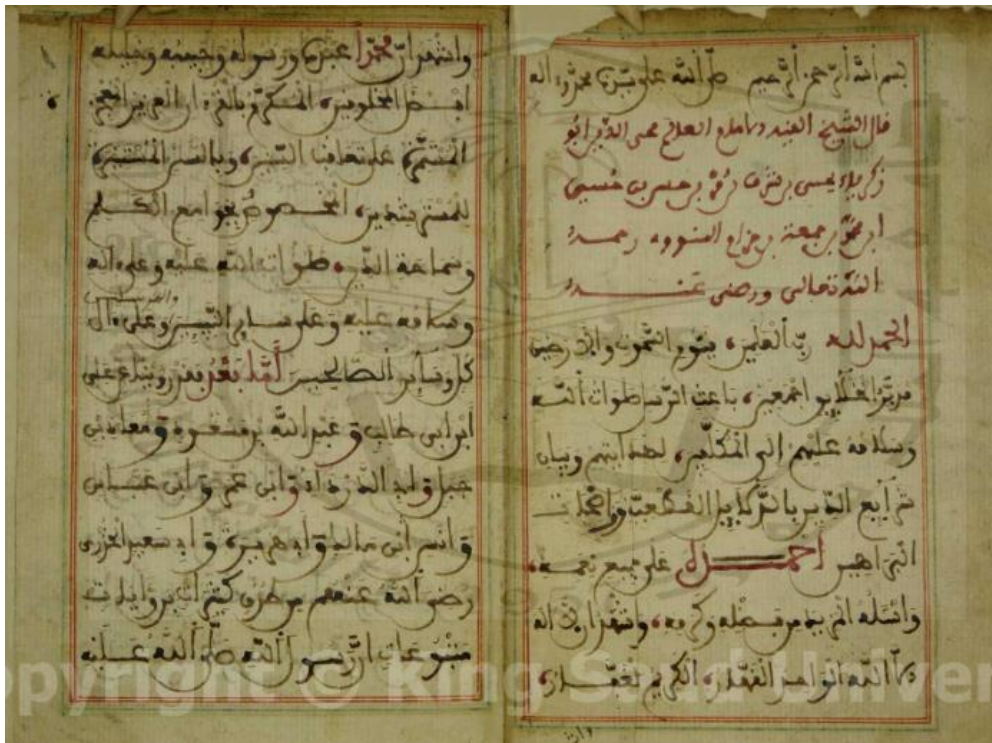 بسم الله الرحمن الرحيم صلى الله على سيدنا محمد وءاله
قال الشيخ الفقيه الامام العالم محيى الدين ابو
زكرياء يحيى بن شرف بن حسن بن حسين
ابن محمد بن جمعة بن حزام النووي رحمه
الله تعالى ورضي عنه
الحمد لله رب العلمين، قيوم السموت والارضين
مدبر الخلايق اجمعين، باعث الرسل صلوات الله
وسلامه عليهم الى المكلفين، لهدايتهم وبيان
شرايع الدين بالدلايل القطعية وواضحات
البراهين احمده على جميع نعمه،
واسئله المزيد من فضله وكرمه، واشهد ان لا اله
الا الله الواحد القهار، الكريم الغفار،
واشهد ان محمدا عبده ورسوله وحبيبه وخليله
افضل المخلوقين، المكرم بالقرءان العزيز المعجزة
المستمرة على تعاقب السنين، وبالسنن المستنيرة
للمسترشدين، المخصوص بجوامع الكلم
وسماحة الدين، صلوات الله عليه وعلى اله
وسلامه عليه وعلى ساير النبيين وعلى ءال
كل وساير الصالحين أما بعد فقد روينا عن علي
ابن ابي طالب وعبد الله بن مسعود ومعاذ بن
جبل وابي الدرداء وابن عمر وابن عباس
وانس ابن مالك وابي هريرة وابي سعيد الخدري
رضي الله عنهم من طرق كثيرات بروايات
متنوعات ان رسول الله صلى الله عليه
Copyright © King Saud Univer